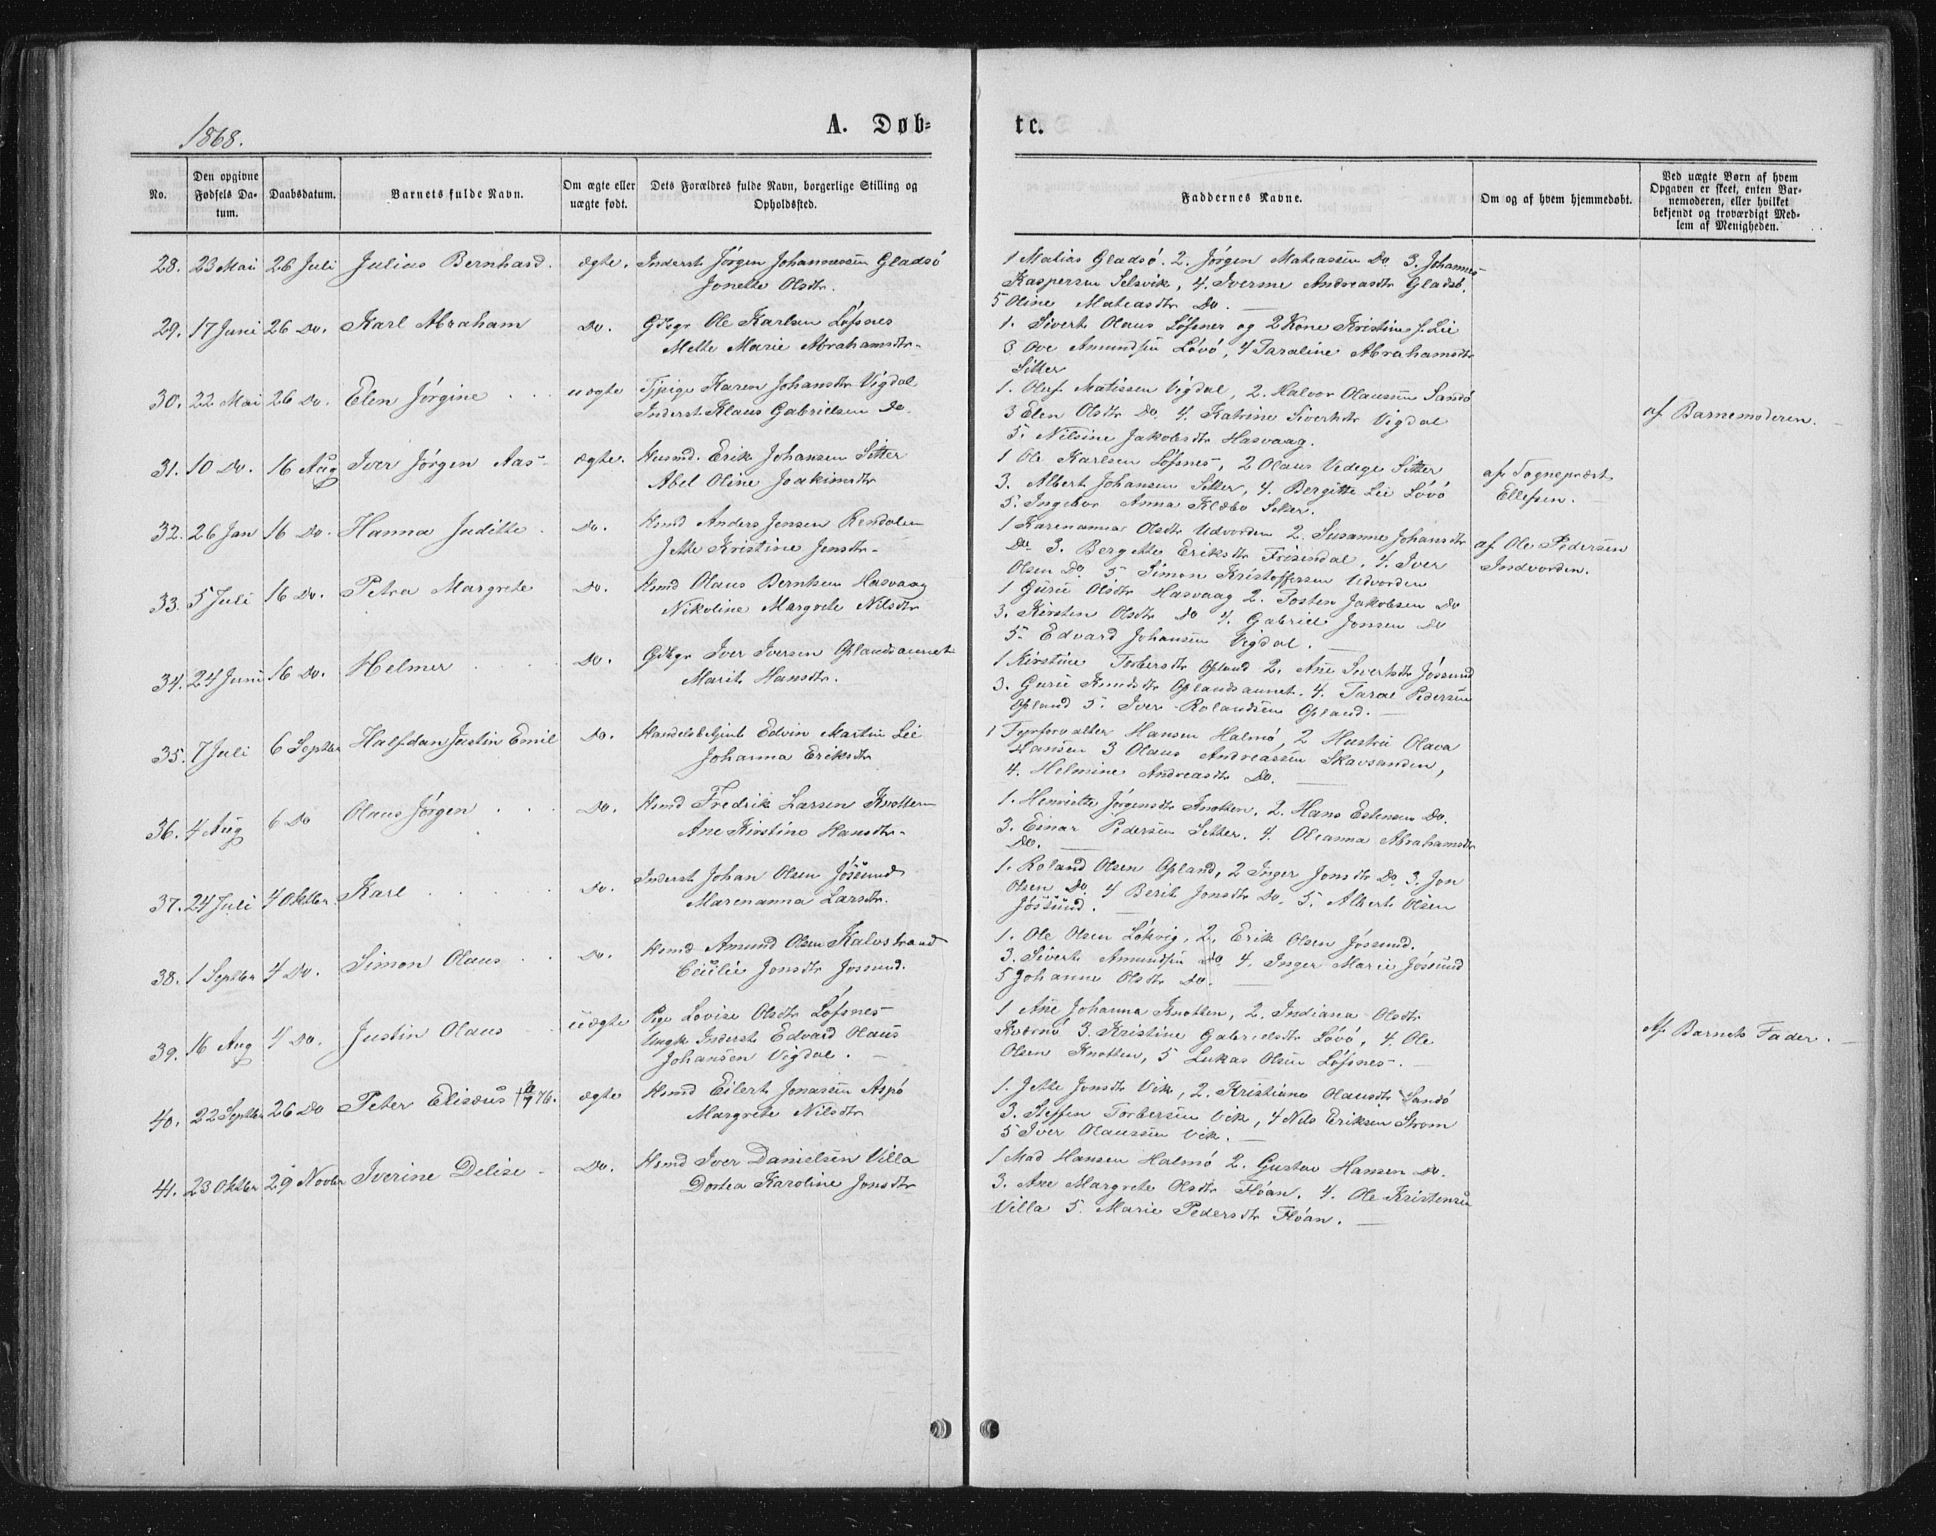 1868.
A. Døb-
te.
No.
Den opgivne Fødsels Da-tum.
Daabsdatum.
Barnets fulde Navn.
Om ægte eller uægte født.
Dets Forældres fulde Navn, borgerlige Stilling og Opholdssted.
Faddernes Navne.
Om og af hvem hjemmedøbt.
Ved uægte Børn af hvem Opgaven er skeet, enten Bar-nemoderen, eller hvilket bekjendt og troværdigt Med-lem af Menigheden.
28. 23 Mai 26 Juli Julius Bernhard. ægte. Inderst Jørgen Johannessen Gladsö
Jonette Olsdtr.
1 Matias Gladsö. 2. Jørgen Mateassen Do 3. Johannes
Kaspersen Selsvik, 4. Iverine Andreasdtr Gladsö.
5 Oline Mateasdtr Do.
29. 17 Juni 26 Do. Karl Abraham Do. Gdbgr Ole Karlsen Löfsnes
Mette Marie Abrahamsdtr.
1. Sivert Olaus Löfsnes og 2 Kone Kristine f. Lie
3 Ove Amundsen Lövö, 4 Taraline Abrahamsdtr
Sitter
30. 22 Mai 26 Do. Elen Jørgine uægte Tjpige Karen Johansdtr Vigdal
Inderst Klaus Gabrielsen Do.
1. Oluf Matissen Vigdal, 2. Halvor Olaussen Sandö
3 Elen Olsdtr Do. 4. Katrine Sivertsdtr Vigdal
5. Nilsine Jakobsdtr Hasvaag.
af Barnemoderen.
31. 10 Do. 16 Aug Iver Jørgen Aas ægte. Husmd. Erik Johansen Sitter
Abel Oline Joakimsdtr
1 Ole Karlsen Löfsnes, 2 Olaus Vedege Sitter
3. Albert Johansen Sitter, 4. Bergitte Lie Lövö
5. Ingebor Anna Klæbo Selsv.
af Sogneprest
Ellefsen.
32. 26 Jan 16 Do. Hanna Juditte Do. Hsmd Anders Jensen Rendalen
Jette Kristine Jensdtr.
1 Karenanna Olsdtr Udvorden 2. Susanne Johansdtr
Do 3. Bergette Eriksdtr Frisendal, 4. Iver
Olsen Do 5 Simon Kristoffersen Udvorden
af Ole Pedersen
Indvorden.
33. 5 Juli 16 Do. Petra Margrete Do. Hsmd Olaus Berntsen Hasvaag
Nikoline Margrete Nilsdtr
1 Gurie Olsdtr Hasvaag 2. Tosten Jakobsen Do
3. Kirsten Olsdtr Do 4. Gabriel Jonsen Do
5. Edvard Johansen Vigdal.
34. 24 Juni 16 Do. Helmer Do. Gdbgr Iver Iversen Oplandsaunet
Marit Hansdtr.
1 Kirstine Torbersdtr Opland 2. Ane Sivertsdtr Jössund
3. Gurie Knudsdtr Oplandsaunet. 4. Taral Pedersen
Opland 5. Iver Rolandsen Opland.
35. 7 Juli 6 Septber Halfdan Justin Emil Do. Handelsbetjent Edvin Martin Lie
Johanna Eriksdtr
1 Fyrforvalter Hansen Halmö, 2 Hustru Olava
Hansen 3 Olaus Andreassen Skavsanden,
4. Helmine Andreasdtr Do.
36. 4 Aug 6 Do Olaus Jørgen Do. Hsmd Fredrik Larsen Knotten
Ane Kirstine Hansdtr.
1. Henriette Jørgensdtr Knotten, 2. Hans Estensen Do.
3. Einar Pedersen Sitter. 4. Oleanna Abrahamsdtr
Do.
37. 24 Juli 4 Oktbr. Karl Do. Inderst Johan Olsen Jössund
Marenanna Larsdtr.
1. Roland Olsen Opland, 2 Inger Jonsdtr Do. 3. Jon
Olsen Do 4 Berit Jonsdtr Do. 5. Albert Olsen
Jössund.
38. 1 Septber 4 Do. Simon Olaus Do. Hsmd Amund Olsen Kalvstrand
Cecilie Jonsdtr Jössund.
1. Ole Olsen Lökvig, 2. Erik Olsen Jössund.
3. Sivert Amundsen Do 4. Inger Marie Jössund
5 Johanne Olsdtr Do.
39. 16 Aug 4 Do. Justin Olaus uægte Pige Lovise Olsdtr Löfsnes
Ungk Inderst Edvard Olaus
Johansen Vigdal.
1 Ane Johanna Knotten, 2. Indiana Olsdtr
Kværnö 3. Kristine Gabrielsdtr Lövö, 4. Ole
Olsen Knotten, 5 Lukas Olsen Löfsnes.
Af Barnets Fader.
40. 22 Septber 26 Do Peter Elisæus ægte Hsmd Eilert Jonassen Aspö
Margrete Nilsdtr
1. Jette Jonsdtr Vik, 2. Kristiane Olausdtr Sandö
3. Steffen Torbersen Vik, 4 Nils Eriksen Strøm
5 Iver Olaussen Vik.
41. 23 Oktber 29 Novbr Iverine Delise Do. Hsmd Iver Danielsen Villa
Dortea Karoline Jonsdtr
1 Mad Hansen Halmö 2. Gustav Hansen Do.
3. Ane Margrete Olsdtr Flöan. 4. Ole Kristensen
Villa 5. Marie Pedersdtr Flöan.